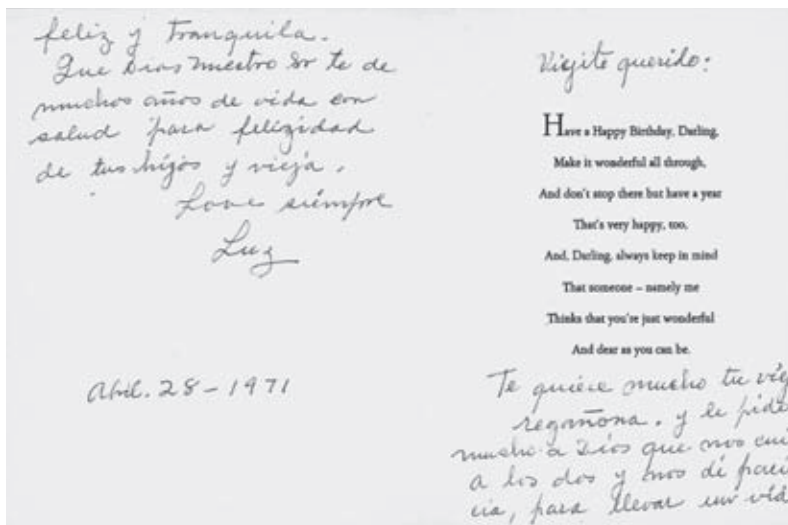 feliz y tranquila.
Que Dios nuestro Sr te de
muchos años de vida con
salud para felizidad
de tus hijos y vieja.
Love siempre
Luz
Abril. 28 - 1971
Viejito querido:
Have a Happy Birthday, Darling,
Make it wonderful all through,
And don't stop there but have a year
That's very happy, too,
And, Darling, always keep in mind
That someone – namely me
Thinks that you're just wonderful
And dear as you can be.
Te quiere mucho tu viej
regañona. y le pide
mucho a Dios que nos cui
a los dos y nos dé paci
cia, para llevar un vid